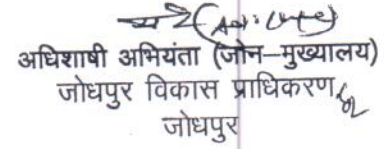 अधिशाषी अभियंता (जोन–मुख्यालय)
जोधपुर विकास प्राधिकरण
जोधपुर